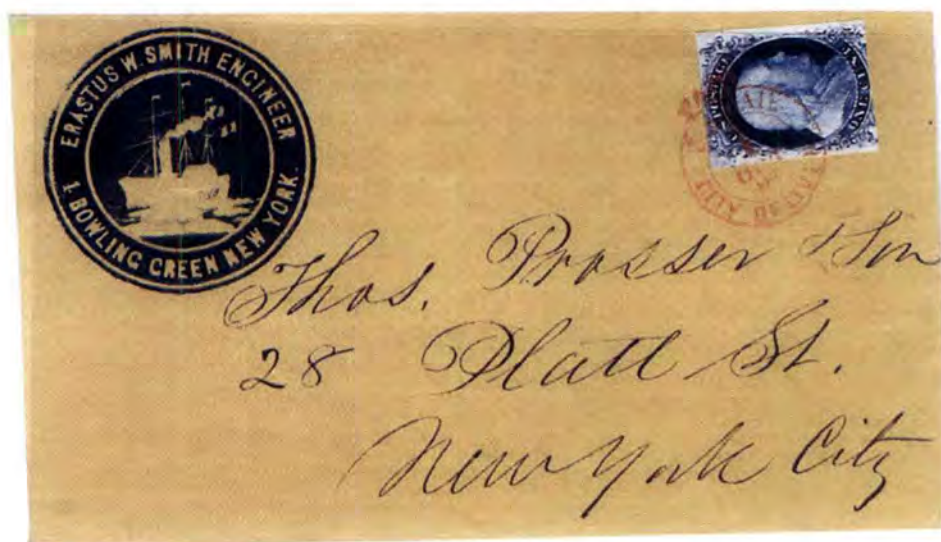 ERASTUS W. SMITH ENGINEER
1 BOWLING GREEN NEW YORK.
U.S. POSTAGE
ONE CENT
CITY DELIVERY
Thos. Prosser & Son
28 Platt St.
New York City